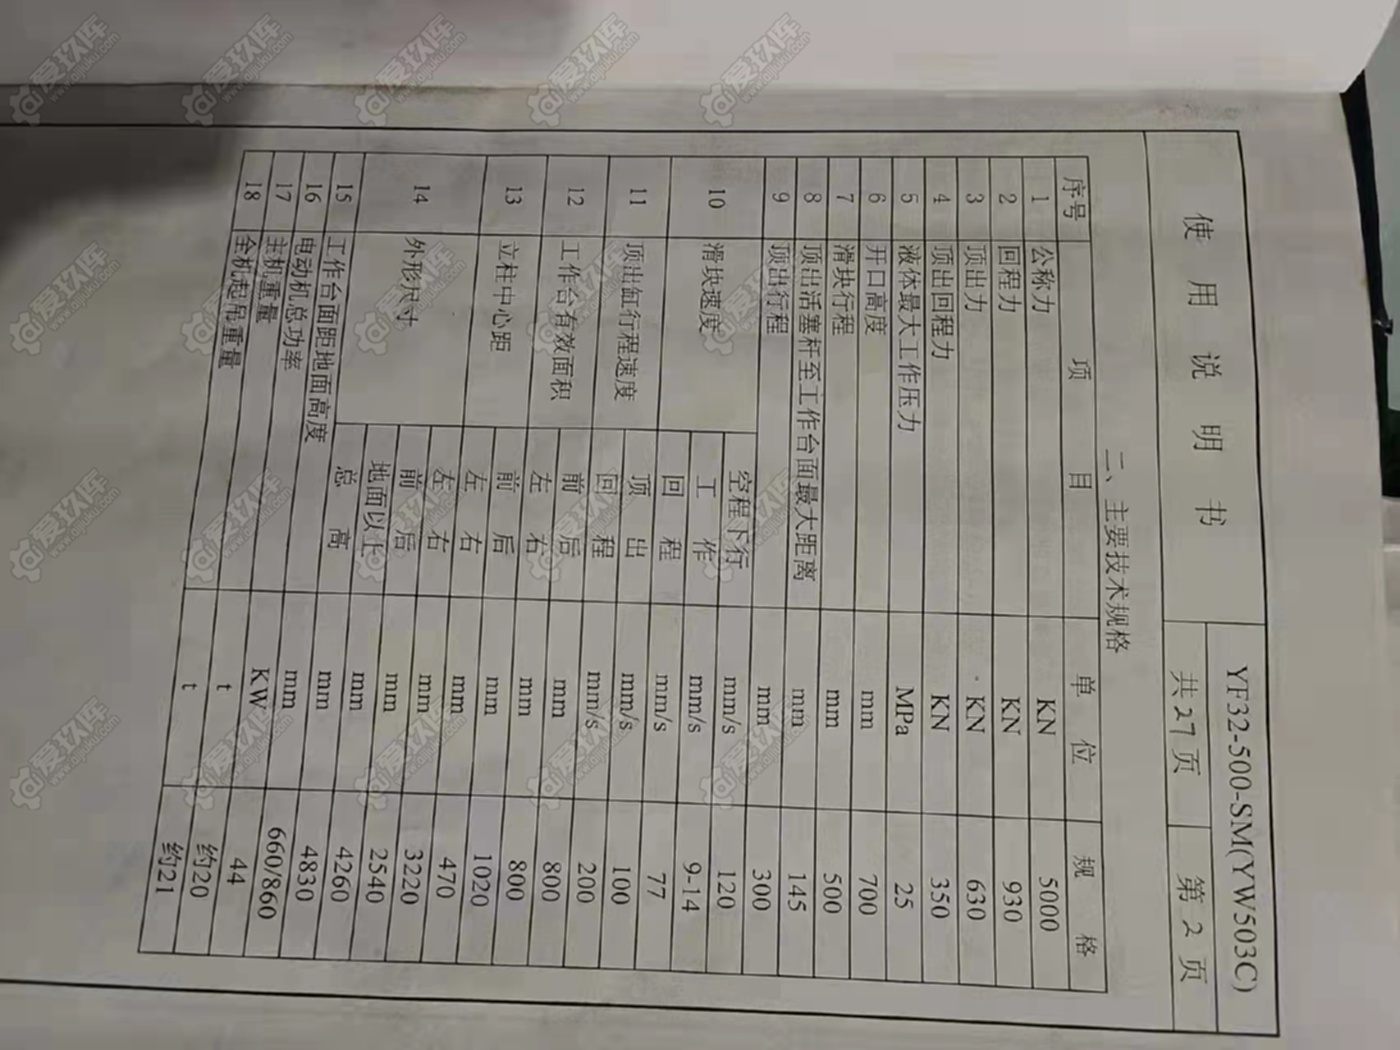 使用说明书
YF32-500-SM(YW503C)
共27页 第2页
二、主要技术规格
序号 项目 单位 规格
1 公称力 KN 5000
2 回程力 KN 930
3 顶出力 KN 630
4 顶出回程力 KN 350
5 液体最大工作压力 MPa 25
6 开口高度 mm 700
7 滑块行程 mm 500
8 顶出活塞杆至工作台面最大距离 mm 145
9 顶出行程 mm 300
10 滑块速度 空程下行 mm/s 120
工作 mm/s 9-14
回程 mm/s 77
11 顶出缸行程速度 顶出 mm/s 100
回程 mm/s 200
12 工作台有效面积 前后 mm 800
左右 mm 800
13 立柱中心距 前后 mm 1020
左右 mm 470
14 外形尺寸 左右 mm 3220
前后 mm 2540
地面以上 mm 4260
总高 mm 4830
15 工作台面距地面高度 mm 660/860
16 电动机总功率 KW 44
17 主机重量 t 约20
18 全机起吊重量 t 约21
爱玖库
www.aijiuku.com